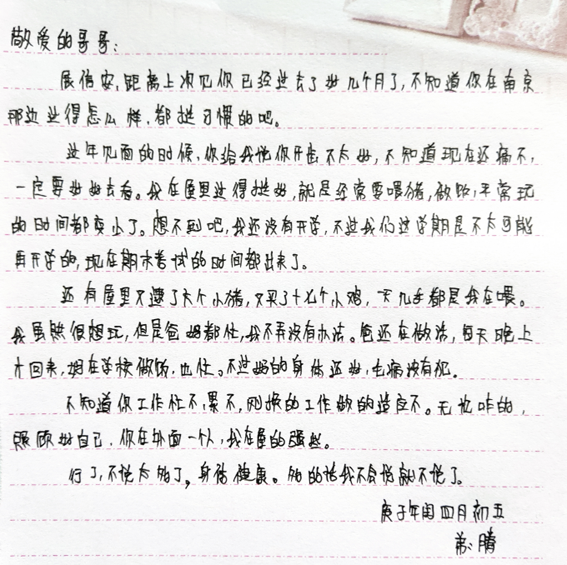 敬爱的哥哥:
展信安,距离上次见你已经过去了好几个月了,不知道你在南京
那边过得怎么样,都挺习惯的吧。
过年见面的时候,你给我说你牙齿不太好,不知道现在还痛不,
一定要好好去看。我在屋里过得挺好,就是经常要喂猪,做饭,平常玩
的时间都变少了。想不到吧,我还没有开学,不过我们这学期是不太可能
再开学的,现在期末考试的时间都出来了。
还有屋里不遭了六个小猪,又买了十七个小鸡,一天几乎都是我在喂。
我虽然很想玩,但是爸妈都忙,我不弄没有办法。爸还在做活,每天晚上
才回来,妈在学校做饭,也忙。不过妈的身体还好,毛病没有犯。
不知道你工作忙不,累不,刚换的工作做的适应不。无论咋的,
照顾好自己,你在外面一个人,我在屋的
行了,不说太多了,身体健康。别的话我不会说就不说了。
庚子年闰四月初五
弟:腾